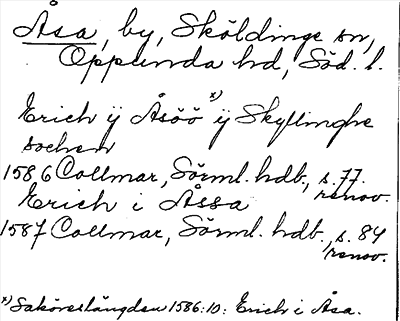 Åsa, by, Sköldinge sn,
Oppunda hd, Söd. l.
Erich ÿ Åsöö x) ÿ Skyllinghe
sochen
1586 Collmar, Sörml. hdb., s. 77.
renov.
Erich i Åssa
1587 Collmar, Sörml. hdb., s. 84
renov.
x) Saköreslängden 1586:10: Erich i Åsa.